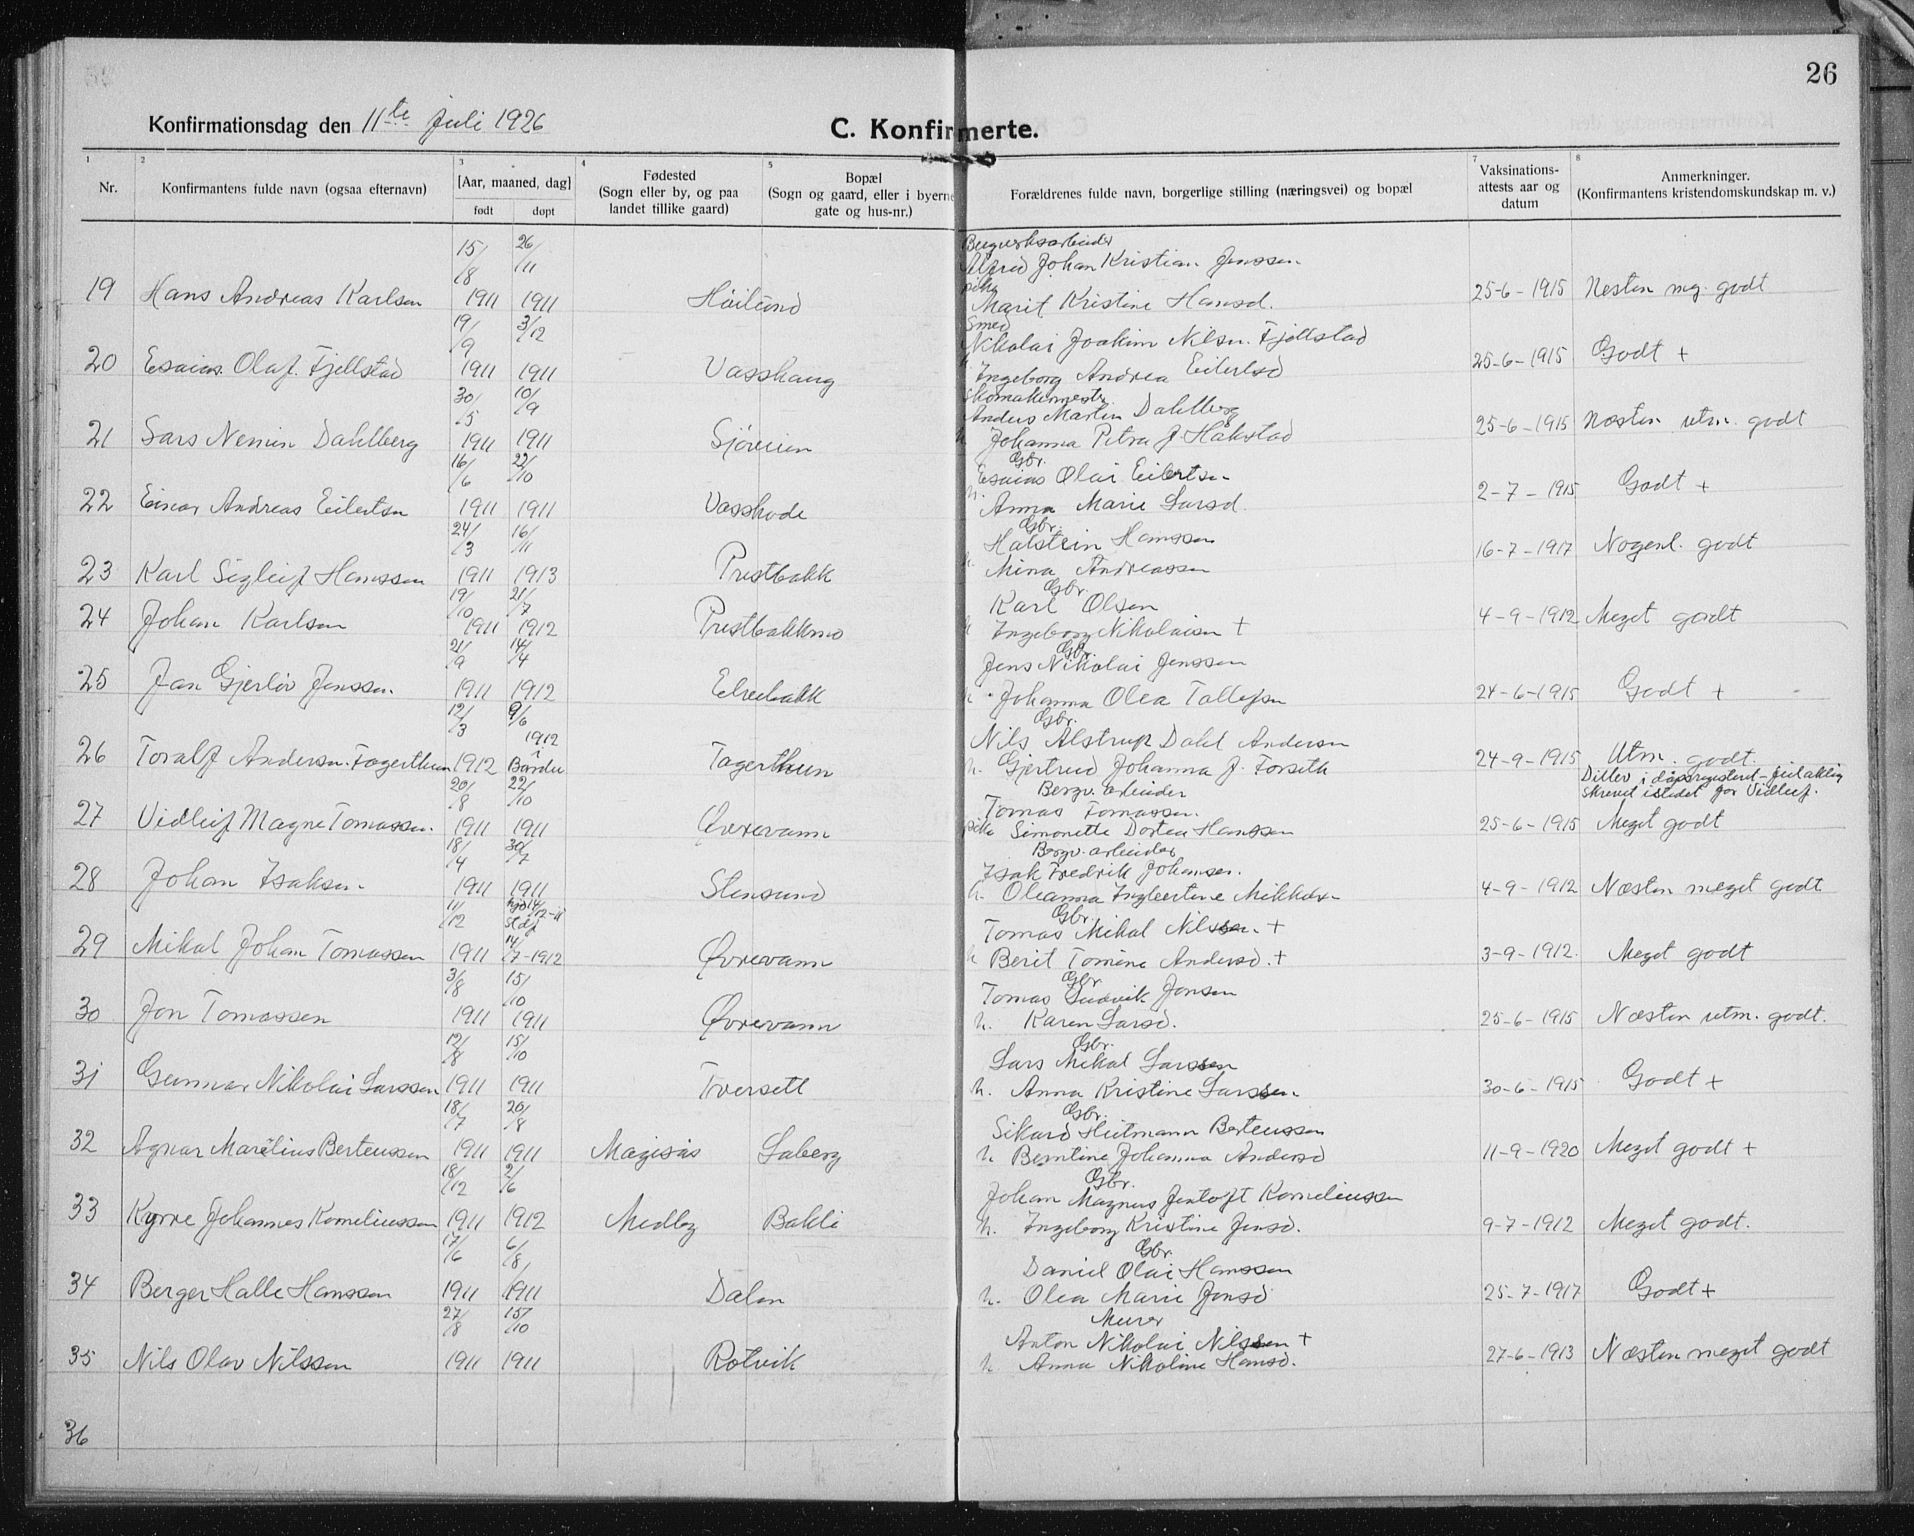 26
Konfirmationsdag den 11te Juli 1926
C. Konfirmerte.
1 2 3 4 5 7 8
Nr.
Konfirmantens fulde navn (ogsaa efternavn)
[Aar, maaned, dag]
født døpt
Fødested
(Sogn eller by, og paa
landet tillike gaard)
Bopæl
(Sogn og gaard, eller i byerne
gate og hus-nr.)
Forældrenes fulde navn, borgerlige stilling (næringsvei) og bopæl
Vaksinations-
attests aar og
datum
Anmerkninger.
(Konfirmantens kristendomskundskap m. v.)
15/8 26/11 Bergverksarbeider
Alfred Johan Kristian Jenssen
19 Hans Andreas Karlsen 1911 1911 Høilund pike Marit Kristine Hansd. 25-6-1915 Nesten mg. godt
19/9 3/12 Smed
Nikolai Joakim Nilsn. Fjellstad
20 Esaias Olaf Fjellstad 1911 1911 Vasshaug h. Ingeborg Andrea Eilertsd 25-6-1915 Godt +
30/5 10/9 Skomakermestr.
Anders Martin Dahlberg
21 Lars Nemin Dahlberg 1911 1911 Sjøveien h. Johanna Petra J Håkstad 25-6-1915 Næsten utm. godt
16/6 22/10 Gbr.
Esaias Olai Eilertsen
22 Einar Andreas Eilertsen 1911 1911 Vasshode h. Anna Marie Larsd. 2-7-1915 Godt +
24/3 16/11 Gbr.
Halstein Hanssen
23 Karl Sigleif Hanssen 1911 1913 Prestbakk h. Mina Andreassen 16-7-1917 Nogenl. godt
19/10 21/7 Gbr.
Karl Olsen
24 Johan Karlsen 1911 1912 Prestbakkmo h Ingeborg Nikolaisen + 4-9-1912 Meget godt
21/9 14/4 Gbr.
Jens Nikolai Jenssen
25 Jan Gjerløv Jenssen. 1911 1912 Elvebakk h. Johanna Olea Tollefsen 24-6-1915 Godt +
12/3 9/6 1912 Gbr.
Nils Alstrup Dahl Andersen
26 Toralf Andersen Fagerthun 1912 i Bardu Fagerthun h. Gjertrud Johanna J. Forseth 24-9-1915 Utm. godt.
20/8 22/10 Bergv. arbeider
Ditlev i dåpsregisteret
skrevet istedet for Vidleif.
Tomas Tomassen.
27 Vidleif Magne Tomassen. 1911 1911 Øvrevann pike Simonette Dortea Hanssen 25-6-1915 Meget godt
18/4 30/7 Bergv. arbeider
Isak Fredrik Johansen.
28 Johan Isaksen 1911 1911 Stensund h. Oleanna Ingbertine Mikkels. 4-9-1912 Næsten meget godt
11/12 hjd 14/12-11 Gbr.
Tomas Mikal Nilssen. +
29 Mikal Johan Tomassen 1911 14/7-1912 Øvrevann h Berit Tomine Andersd. + 3-9-1912. Meget godt
3/8 15/10 Gbr
Tomas Ludvik Jonsen
30 Jon Tomassen 1911 1911 Øvrevann h. Karen Larsd. 25-6-1915 Næsten utm. godt.
12/8 15/10 Gbr.
Lars Mikal Larssen
31 Gunnar Nikolai Larssen 1911 1911 Tversett h. Anna Kristine Larssen 30-6-1915 Godt +
18/7 20/8 Gbr.
Sikard Heitmann Berteussen
32 Agnar Marelius Berteussen 1911 1911 Magisås Laberg h. Berntine Johanna Andersd 11-9-1920 Meget godt +
18/12 2/6 Gbr.
Johan Magnus Jentoft Korneliussen
33 Kyrre Johannes Korneliussen 1911 1912 Medby Bakli h. Ingeborg Kristine Jensd. 9-7-1912 Meget godt.
17/6 6/8 Gbr.
Daniel Olai Hanssen
34 Berger Halle Hanssen 1911 1911 Dalen h. Olea Marie Jonsd 25-7-1917 Godt +
27/8 15/10 Murer
Anton Nikolai Nilssen +
35 Nils Olav Nilssen 1911 1911 Rotvik h Anna Nikoline Hansd. 27-6-1913 Næsten meget godt
36